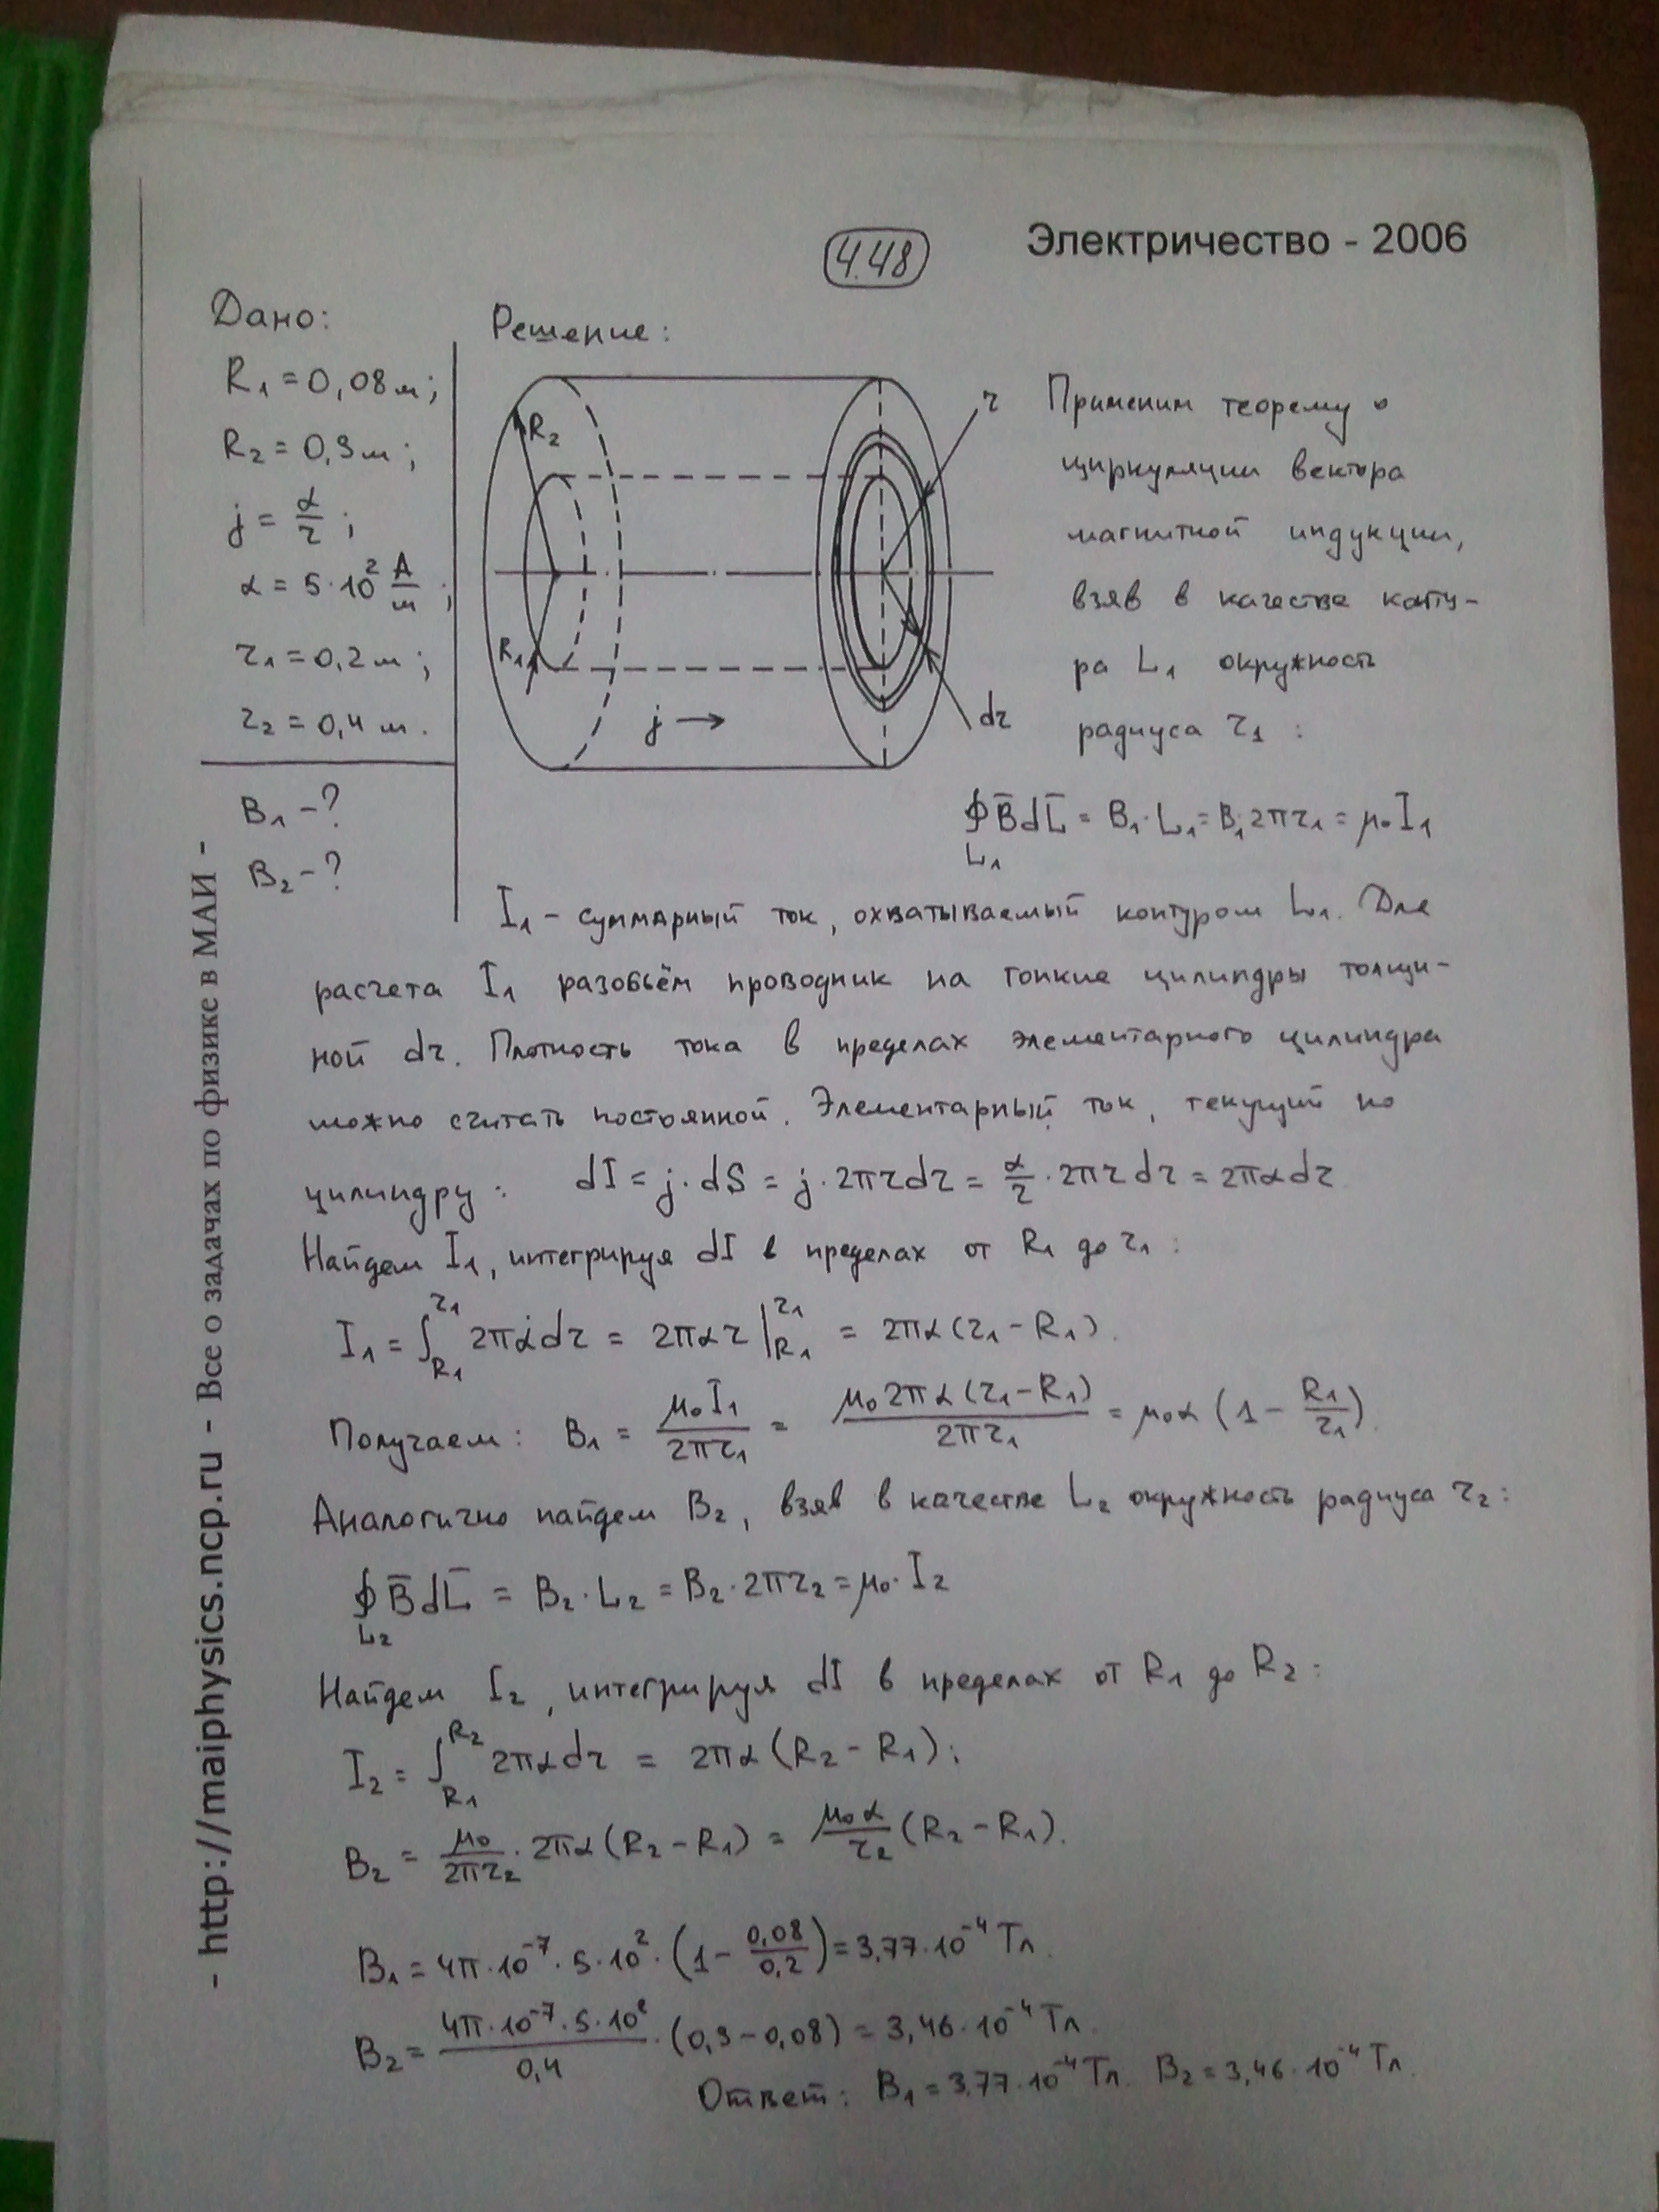 Электричество - 2006
4.48
Дано:
R₁ = 0,08 м;
R₂ = 0,3 м;
j = α/r;
α = 5·10² А/м;
r₁ = 0,2 м;
r₂ = 0,4 м.
B₁ - ?
B₂ - ?
Решение:
R₂
R₁
j →
r
dr
Применим теорему о
циркуляции вектора
магнитной индукции,
взяв в качестве конту-
ра L₁ окружность
радиуса r₁ :
∮_L₁ B̅dL̅ = B₁·L₁ = B₁·2πr₁ = μ₀I₁
I₁ - суммарный ток, охватываемый контуром L₁. Для
расчета I₁ разобьём проводник на тонкие цилиндры толщи-
ной dr. Плотность тока в пределах элементарного цилиндра
можно считать постоянной. Элементарный ток, текущий по
цилиндру: dI = j·dS = j·2πrdr = α/r·2πrdr = 2παdr
Найдем I₁, интегрируя dI в пределах от R₁ до r₁ :
I₁ = ∫_R₁^r₁ 2παdr = 2παr |_R₁^r₁ = 2πα(r₁ - R₁).
Получаем: B₁ = μ₀I₁/2πr₁ = μ₀2πα(r₁ - R₁)/2πr₁ = μ₀α(1 - R₁/r₁).
Аналогично найдем B₂, взяв в качестве L₂ окружность радиуса r₂:
∮_L₂ B̅dL̅ = B₂·L₂ = B₂·2πr₂ = μ₀·I₂
Найдем I₂, интегрируя dI в пределах от R₁ до R₂ :
I₂ = ∫_R₁^R₂ 2παdr = 2πα(R₂ - R₁);
B₂ = μ₀/2πr₂·2πα(R₂ - R₁) = μ₀α/r₂ (R₂ - R₁).
B₁ = 4π·10⁻⁷·5·10²·(1 - 0,08/0,2) = 3,77·10⁻⁴ Тл.
B₂ = 4π·10⁻⁷·5·10²/0,4·(0,3 - 0,08) = 3,46·10⁻⁴ Тл.
Ответ: B₁ = 3,77·10⁻⁴ Тл. B₂ = 3,46·10⁻⁴ Тл.
- http://maiphysics.ncp.ru - Все о задачах по физике в МАИ -